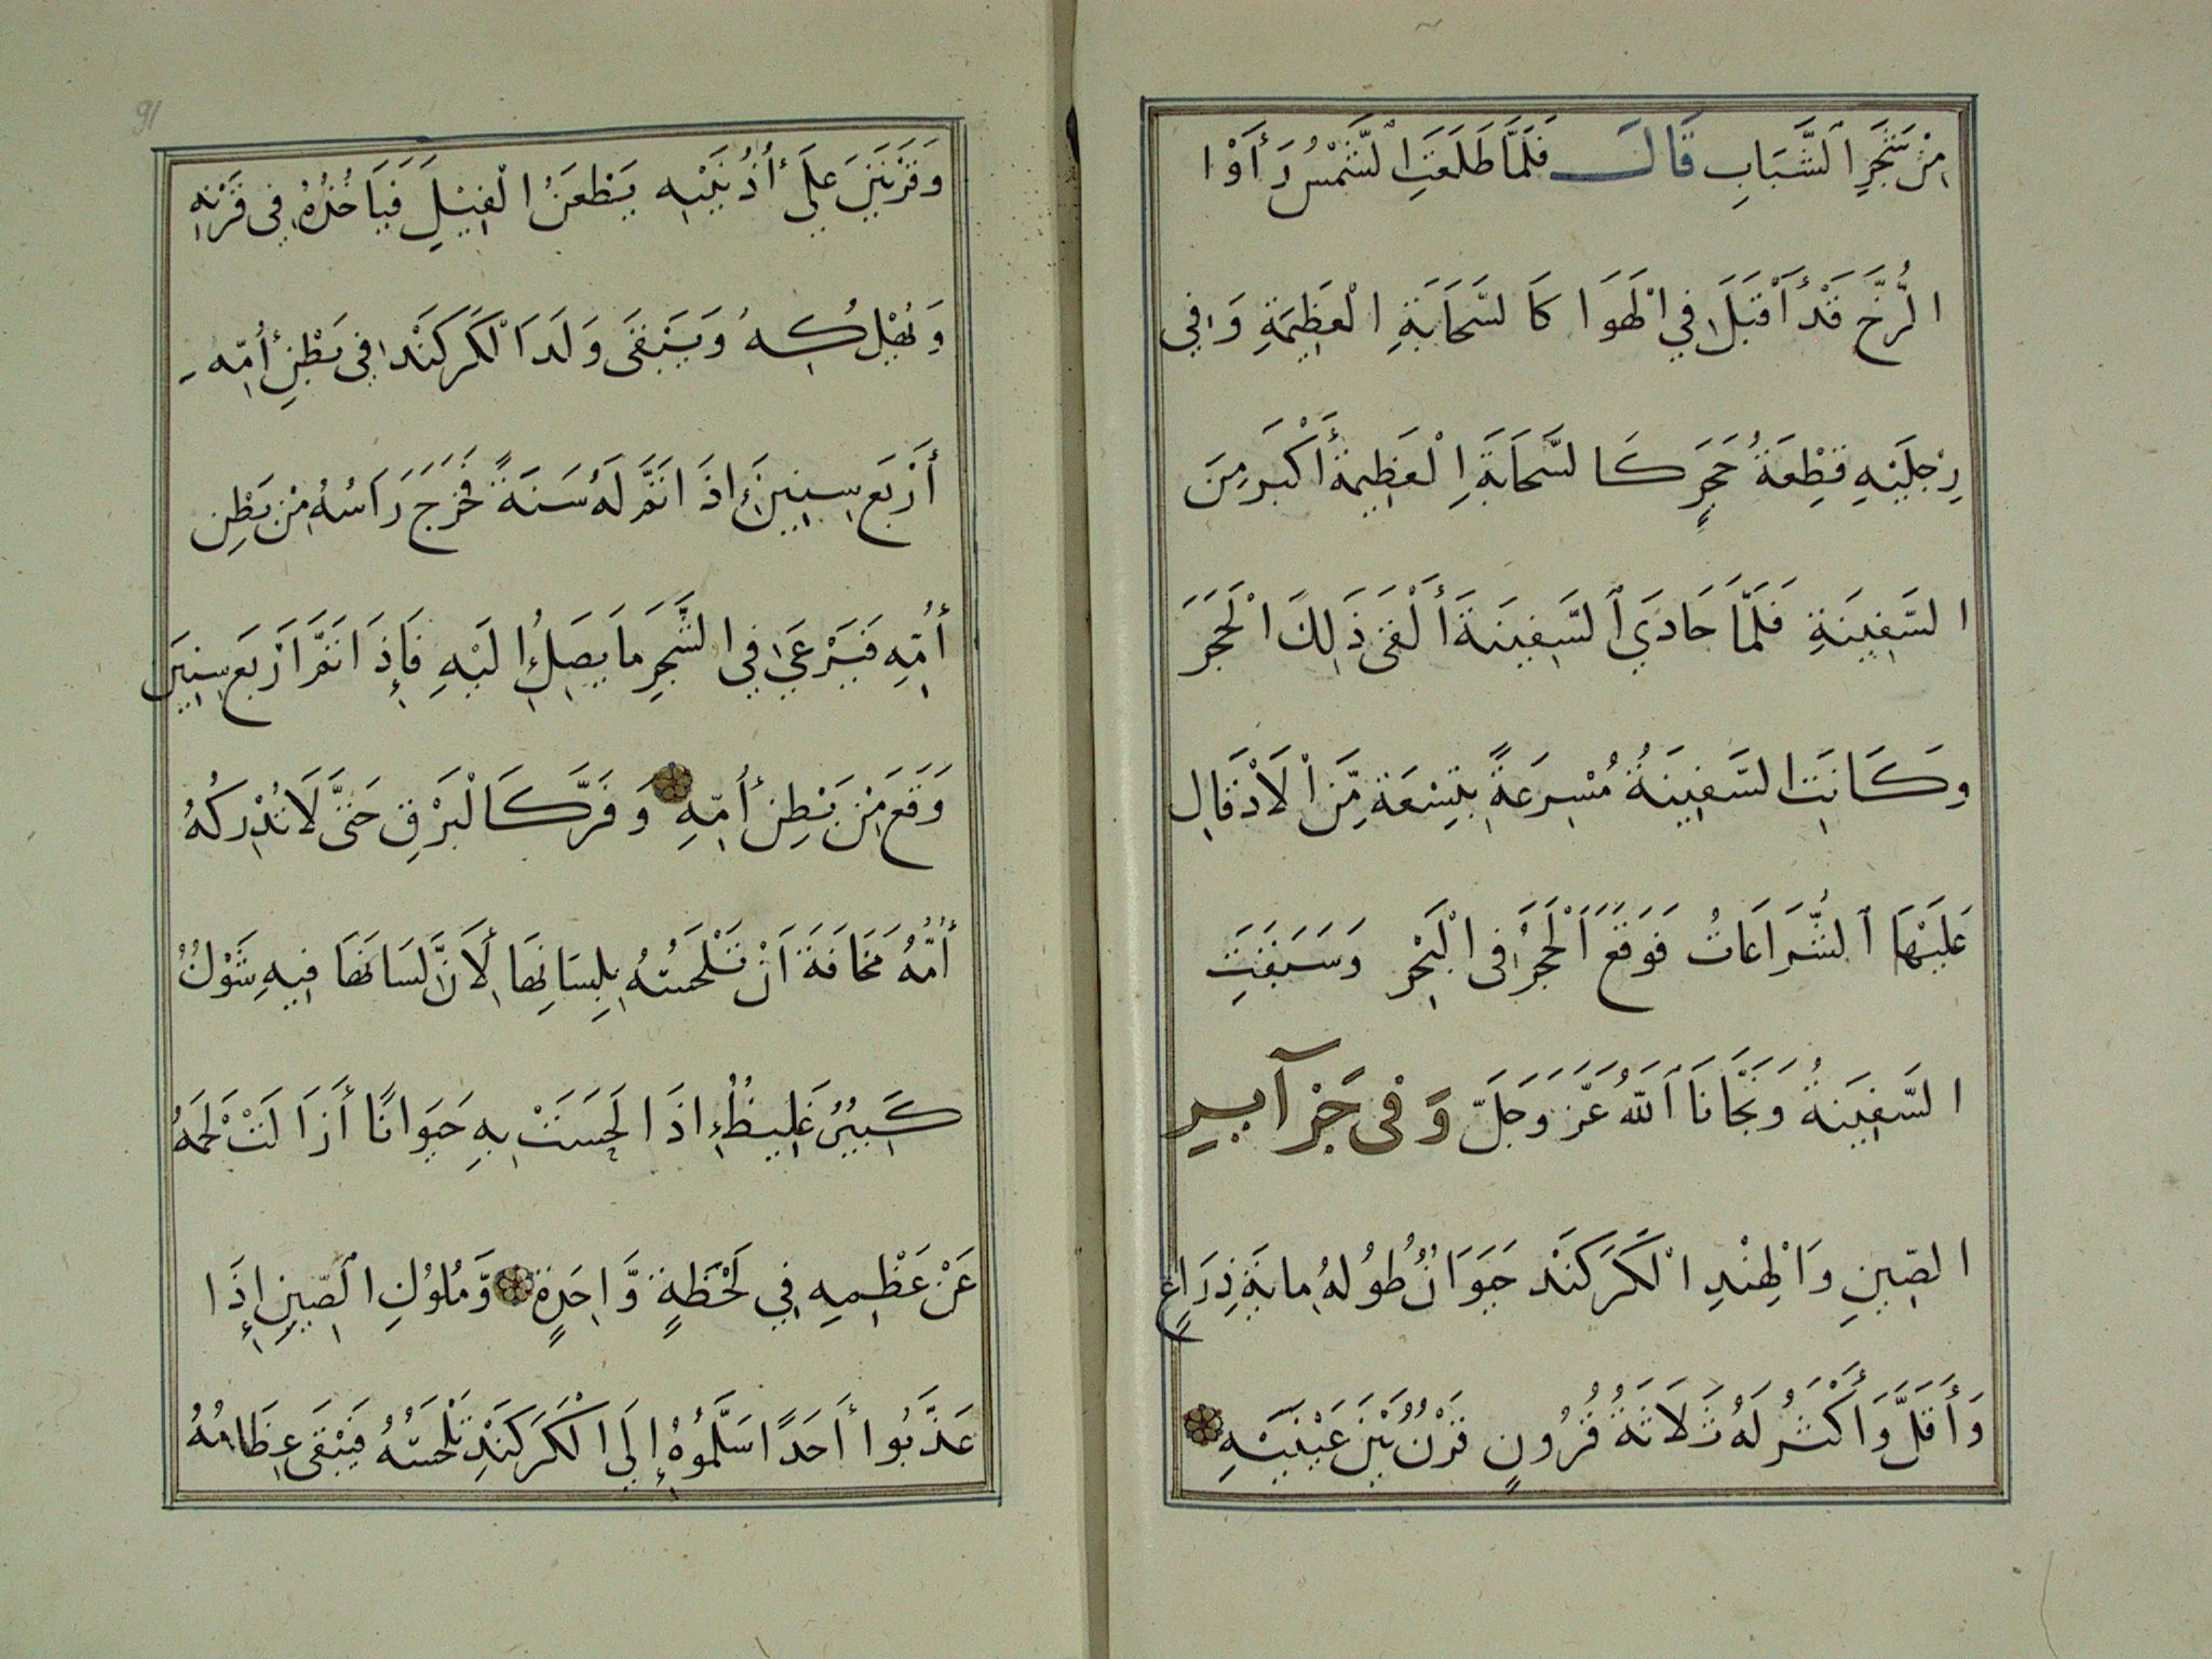 مِنْ شَجَرِ ٱلشَّبَابِ قَالَ فَلَمَّا طَلَعَتِ الشَّمْسُ رَأَوْا
الرُّخَّ قَدْ أَقْبَلَ فِي الْهَوَا كَالسَّحَابَةِ الْعَظِيمَةِ وَفِي
رِجْلَيْهِ قِطْعَةُ حَجَرٍ كَالسَّحَابَةِ الْعَظِيمَةِ أَكْبَر مِنَ
السَّفِينَةِ فَلَمَّا حَاذَي ٱلسَّفِينَةَ أَلْقَى ذَلِكَ الْحَجَرَ
وَكَانَتِ السَّفِينَةُ مُسْرِعَةً بِتِسْعَة مِّنَ الْاَدْقَالِ
عَلَيْهَا ٱلشُّرَاعَاتُ فَوَقَعَ الْحَجَرُ فِي الْبَحْرِ وَسَبَقَتِ
السَّفِينَةُ وَنَجَّانَا ٱللّٰهُ عَزَّ وَجَلَّ وَفِى جَزَآيِرِ
الصِّينِ وَالْهِنْدِ الْكَرَكَنْد حَيَوَانٌ طُولُهُ مِايَةُ ذِرَاعٍ
وَأَقَلَّ وَأَكْثَرُ لَهُ ثَلَاثَةُ قُرُونٍ قَرْنٌ بَيْنَ عَيْنَيْهِ
91
وَقَرْنَيْنِ عَلَى أُذُنَيْهِ يَطْعَنُ الْفِيْلَ فَيَأخُذُهُ فِي قَرْنِهِ
وَيُهْلِكُهُ وَيَبْقَى وَلَدَ الْكَرْكَنْد فِي بَطْنِ أُمِّهِ
أَرْبَع سِنِينَ إِذَا تَمَّ لَهُ سَنَةً خَرَجَ رَاسُهُ مِنْ بَطْنِ
أُمِّهِ فَيَرْعَي فِي الشَّجَرِ مَا يَصِلُ إِلَيْهِ فَإِذَا تَمَّ اَرْبَع سِنِينَ
وَقَعَ مِنْ بَطْنِ أُمِّهِ وَفَرَّ كَالْبَرْقِ حَتَّى لَا تُدْرِكُهُ
أُمُّهُ مَخَافَةَ اَنْ تَلْحَسَهُ بِلِسَانِهَا لِاَنَّ لِسَانَهَا فِيهِ شَوْكٌ
كَبِيْرٌ غَلِيظٌ إِذَا لَحِسَتْ بِهِ حَيَوَانًا أَزَالَتْ لَحْمَهُ
عَنْ عَظْمِهِ فِي لَحْظَةٍ وَّاحِدَةٍ وَّمُلُوْكِ ٱلصِّينِ إِذَا
عَذَّبُوا أَحَدًا سَلَّمُوْهُ إِلَي الْكَرْكَنْدِ تَلْحَسُهُ فَيَبْقَى عِظَامُهُ